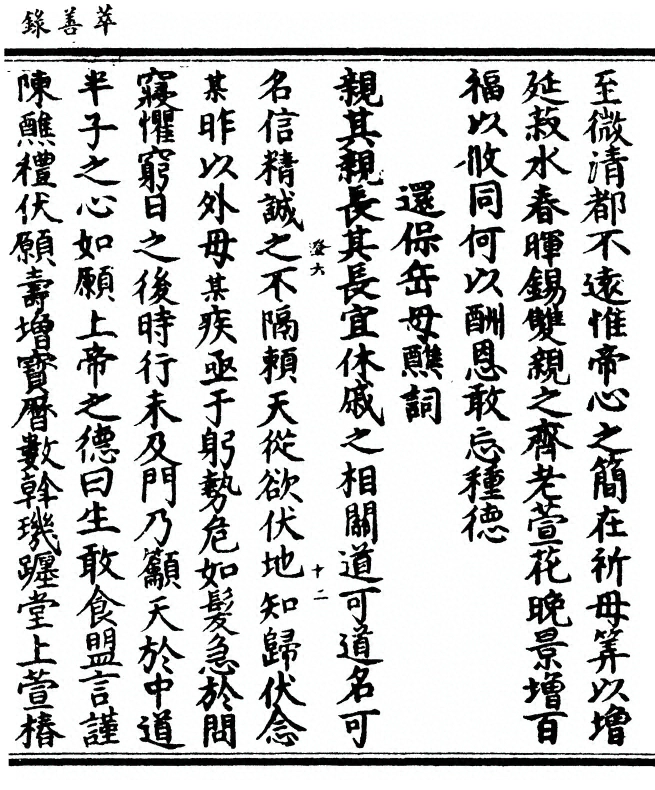 萃善錄
至微清都不遠惟帝心之簡在祈母筭以增
延菽水春暉錫雙親之齊老萱花晚景增百
福以攸同何以酬恩敢忘種德
還保岳母醮詞
親其親長其長宜休戚之相關道可道名可
名信精誠之不隔賴天從欲伏地知歸伏念
某昨以外母某疾亟于躬勢危如髮急於問
寢懼窮日之後時行未及門乃籲天於中道
半子之心如願上帝之德曰生敢食盟言謹
陳醮禮伏願壽增寶曆數斡璣躔堂上萱椿
登六
十二